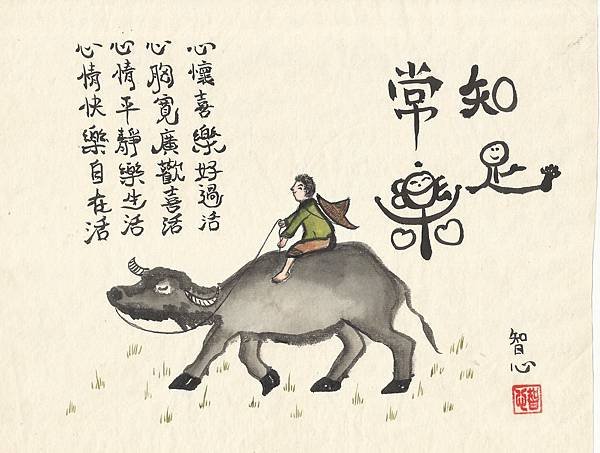 知足
常樂
心懷喜樂好過活
心胸寬廣歡喜活
心情平靜樂生活
心情快樂自在活
智心